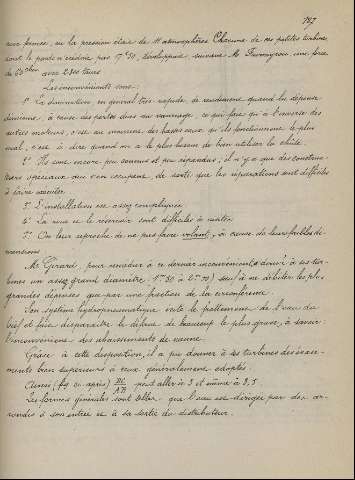 187
aux formes, où la pression était de 11 atmosphères. Chacune de ces petites turbines
dont le poids n'excédait pas 17 k 50, développait, suivant Mr Fourneyron, une force
de 60 chev avec 2300 tours
Les inconvénients sont:
1° La diminution en général très rapide de rendement quand la dépense
diminue, à cause des pertes dues au vannage, ce qui fait qu'à l'inverse des
autres moteurs, c'est au moment des basses eaux qu'ils fonctionnent le plus
mal, c'est à dire quand on a le plus besoin de bien utiliser la chute.
2° Ils sont encore peu connus et peu répandus; il n'y a que des construc-
teurs spéciaux qui s'en occupent, de sorte que les réparations sont difficiles
à faire exécuter
3° L'installation est assez compliquée
4° La cuve et le réservoir sont difficiles à visiter
5° On leur reproche de ne pas faire volant, à cause de leurs faibles di-
mensions
Mr Girard, pour remédier à ce dernier inconvénient a donné à ses tur-
bines un assez grand diamètre (1m50 à 2m70) sauf à ne débiter les plus
grandes dépenses que par une fraction de la circonférence.
Son système hydropneumatique évite le frottement de l'eau du
bief et fait disparaître le défaut de beaucoup le plus grave, à savoir:
l'inconvénient des abaissements de vanne.
Grâce à cette disposition, il a pu donner à ses turbines des évase-
ments bien supérieurs à ceux généralement adoptés.
Ainsi (fig ci-après) BC/AB peut aller à 3 et même à 3,5
Les formes générales sont telles que l'eau est dirigée par des ar-
rondis à son entrée et à sa sortie du distributeur.